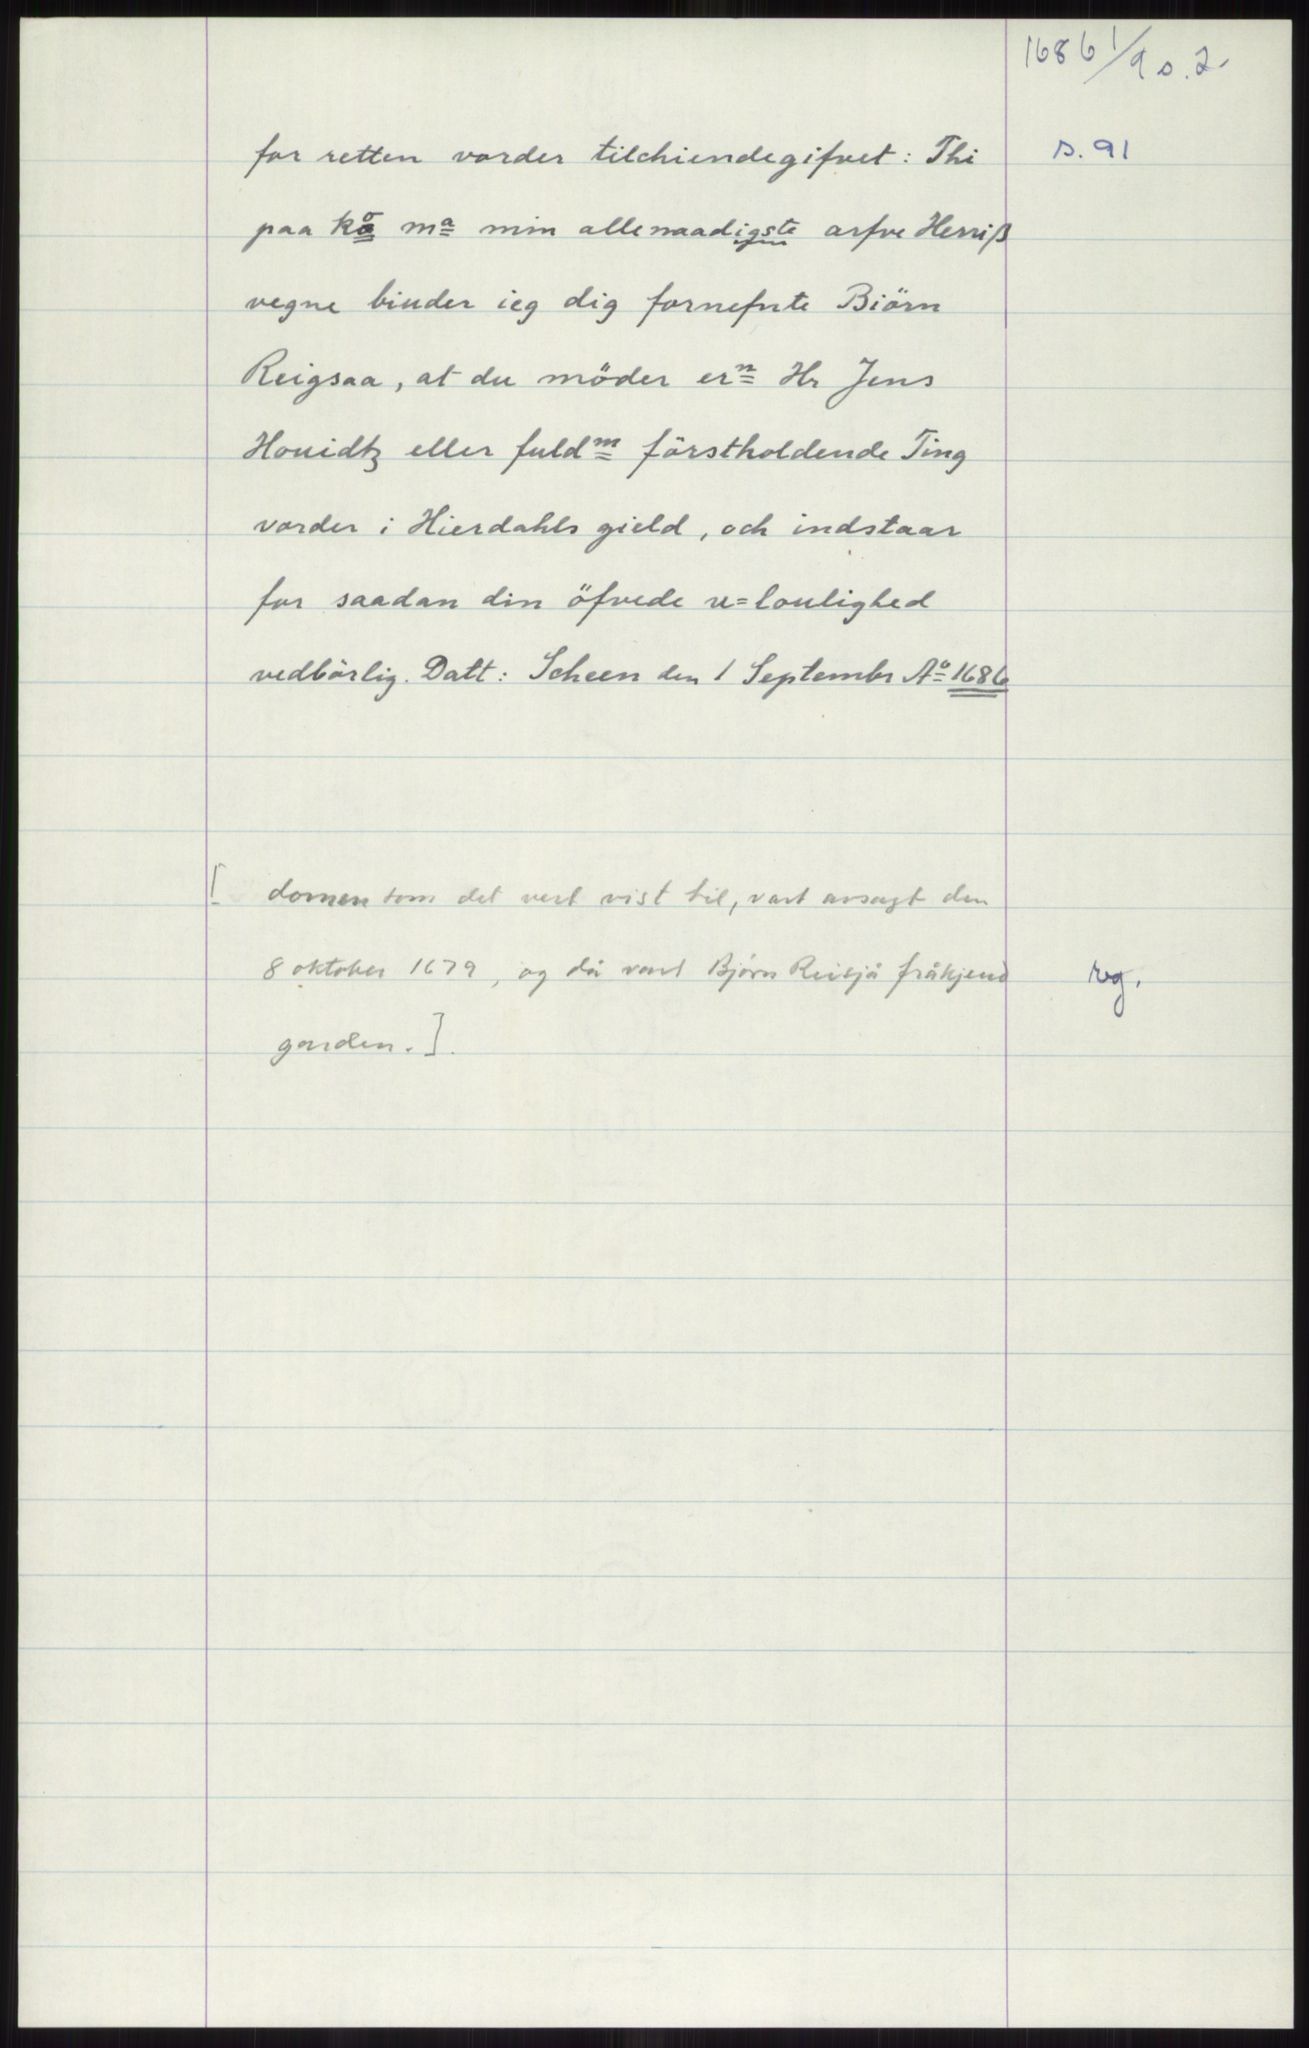 1686 1/9 s. 2.
for retten vorder tilchiendegifvet: Thi s. 91
paa Kº mª min allernaadigste arfve Herriß
vegne biuder ieg dig fornefnte Biörn
Reigsaa, at du möder erⁿ Hr Jens
Houidtz eller fuldᵐ förstholdende Ting
vorder i Hierdahls gield, och indstaar
for saadan din öfvede u=loulighed
vedbörlig. Datt: Scheen den 1 Septembr Aº 1686
[ domen som det vert vist til, vart avsagt den
8 oktober 1679, og då vart Bjørn Reisjå fråkjend rg.
garden.].